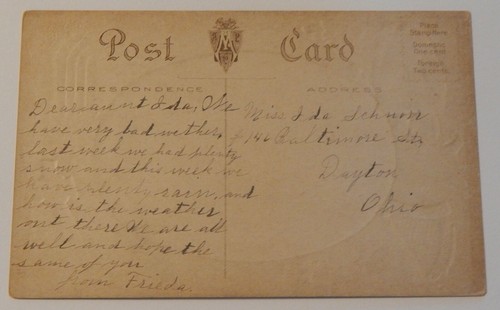 Post Card
Place
Stamp Here
Domestic
One cent
Foreign
Two cents
CORRESPONDENCE
ADDRESS
Dear aunt Ida, We
have very bad wether,
last week we had plenty
snow and this week we
have plenty rain, and
how is the weather
out there We are all
well and hope the
same of you
from Frieda.
Miss Ida
Baltimore St.
Dayton
Ohio